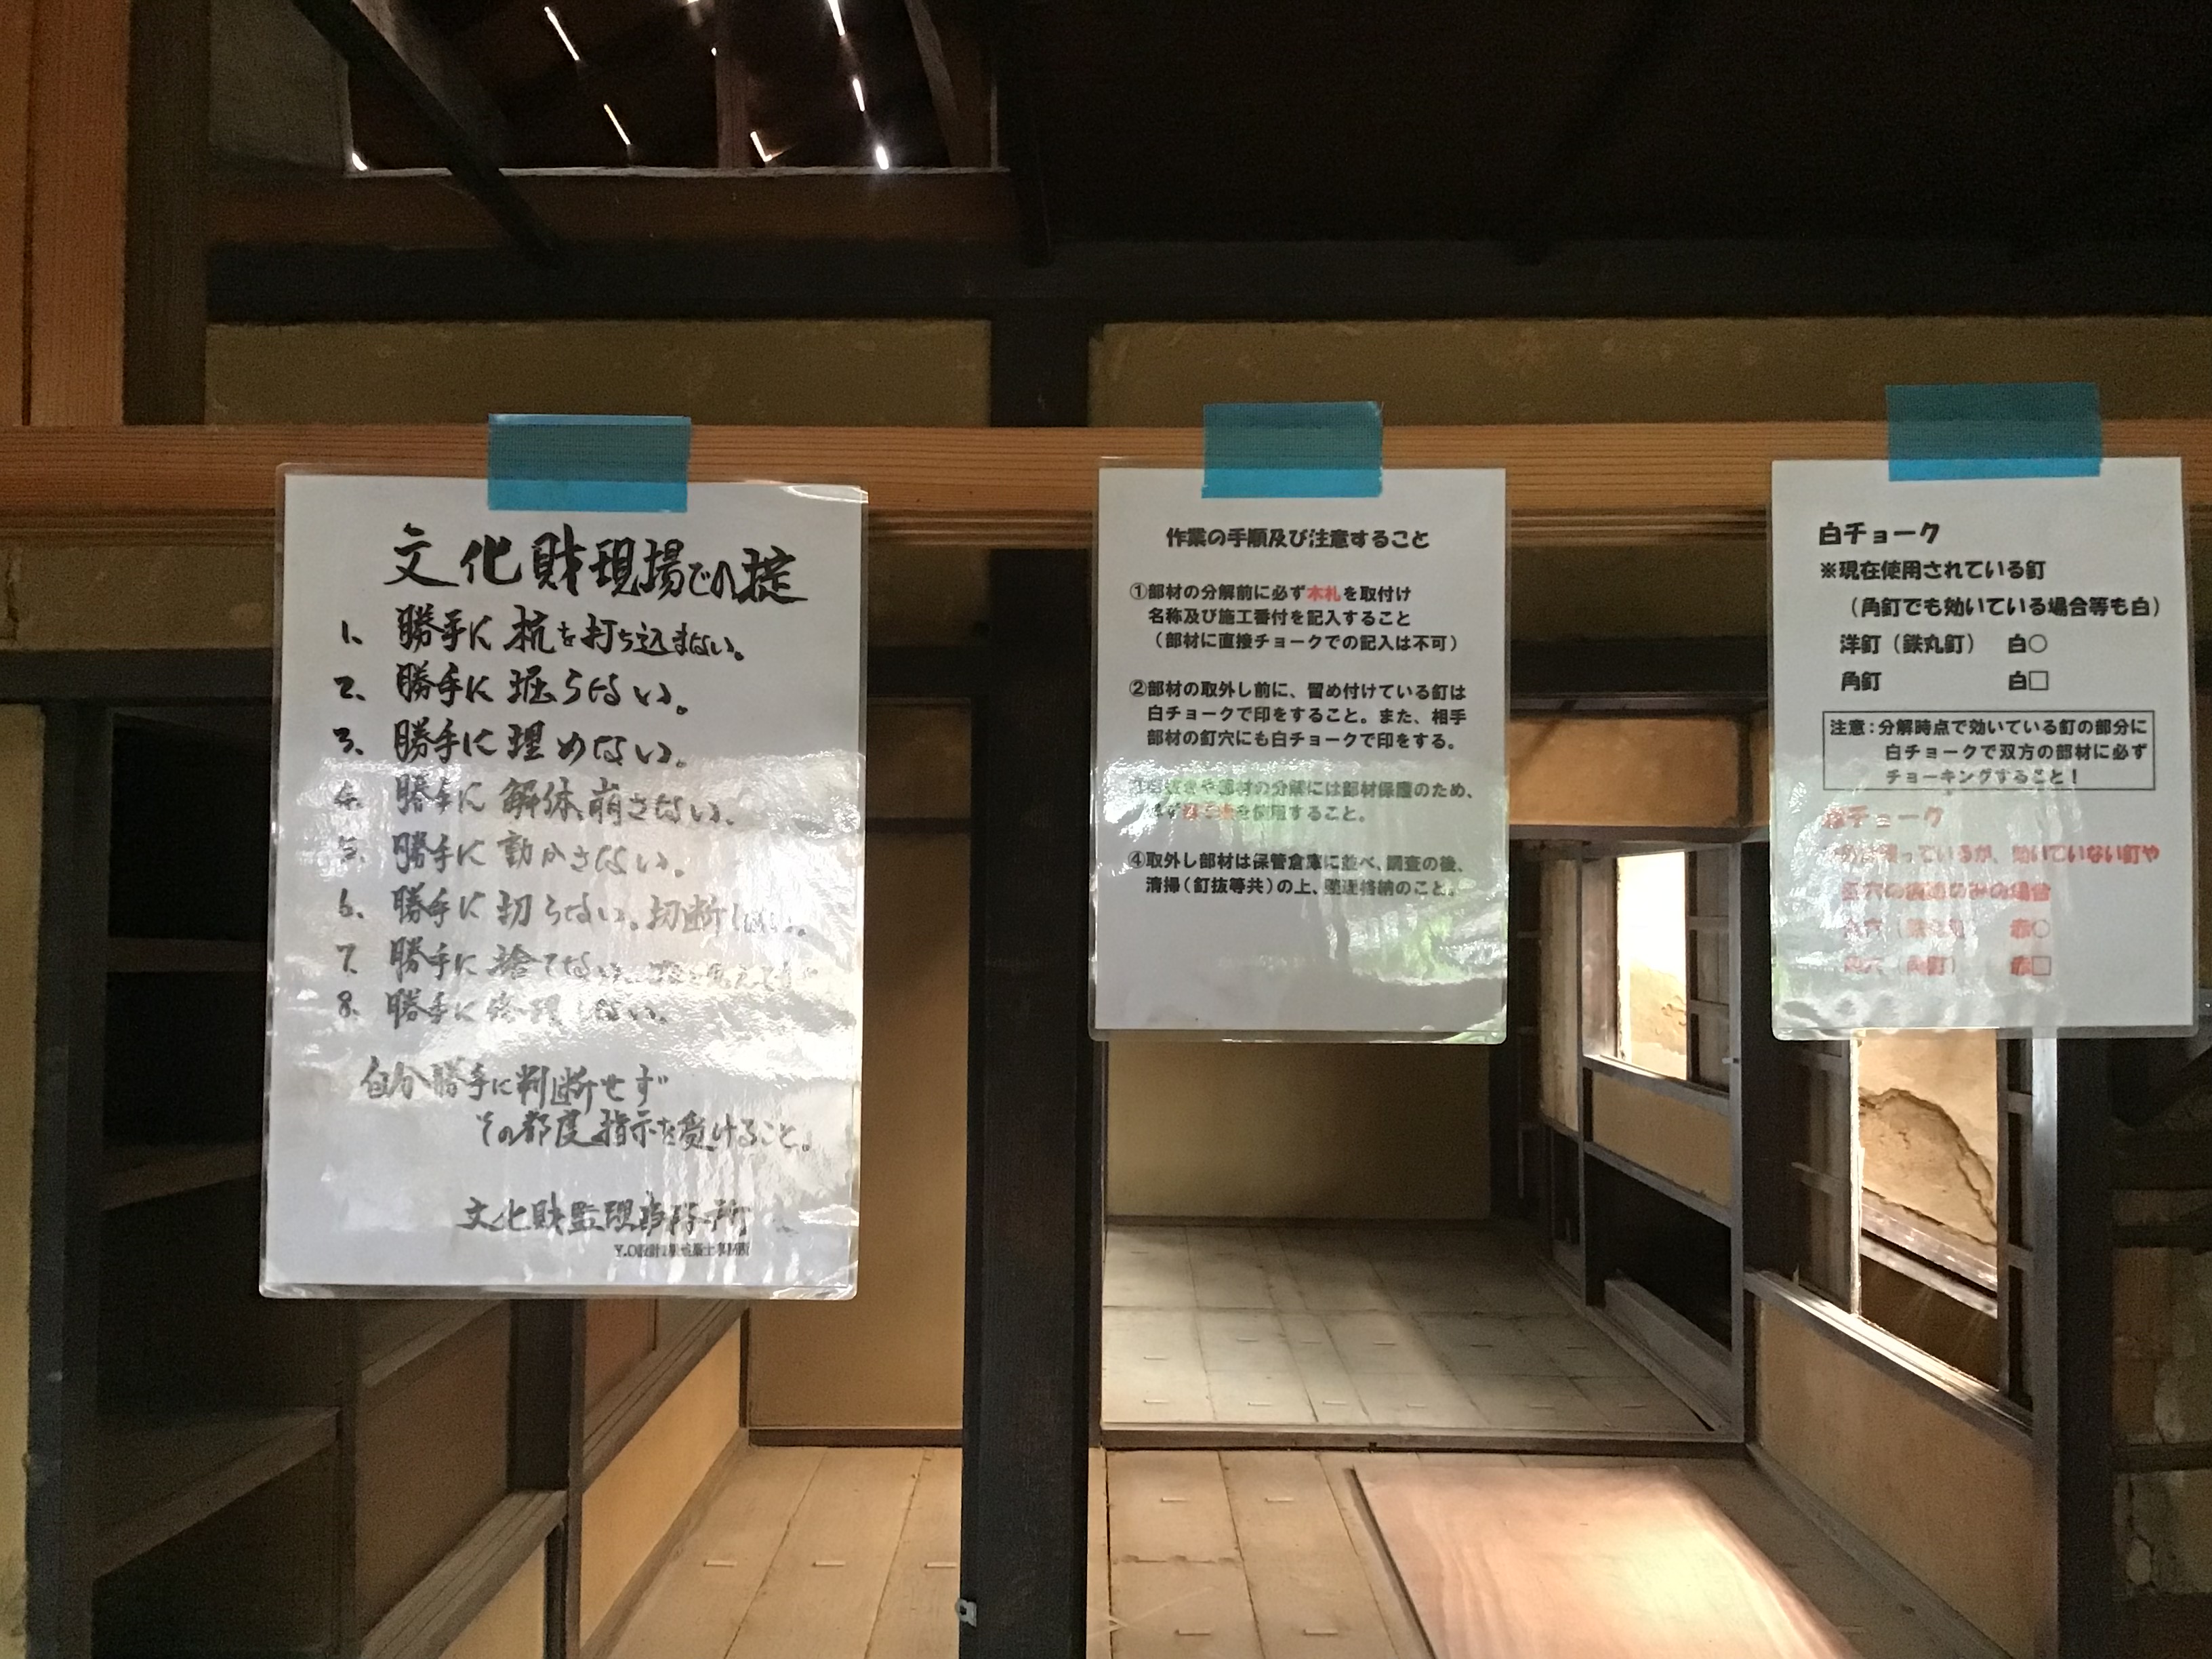 文化財現場での掟
1、勝手に杭を打ち込まない。
2、勝手に掘らない。
3、勝手に埋めない。
4、勝手に解体、崩さない。
5、勝手に動かさない。
6、勝手に切らない。切断しない。
7、勝手に捨てない。
8、勝手に修理しない。
自分勝手に判断せず
その都度指示を受けること。
文化財監理事務所
作業の手順及び注意すること
①部材の分解前に必ず木札を取付け
名称及び施工番付を記入すること
（部材に直接チョークでの記入は不可）
②部材の取外し前に、留め付けている釘は
白チョークで印をすること。また、相手
部材の釘穴にも白チョークで印をする。
や部材の分解には部材保護のため、
必ず を使用すること。
④取外し部材は保管倉庫に並べ、調査の後、
清掃（釘抜等共）の上、整理格納のこと。
白チョーク
※現在使用されている釘
（角釘でも効いている場合等も白）
洋釘（鉄丸釘） 白○
角釘 白□
注意：分解時点で効いている釘の部分に
白チョークで双方の部材に必ず
チョーキングすること！
赤チョーク
っているが、効いていない釘や
釘穴の痕跡のみの場合
赤○
赤□